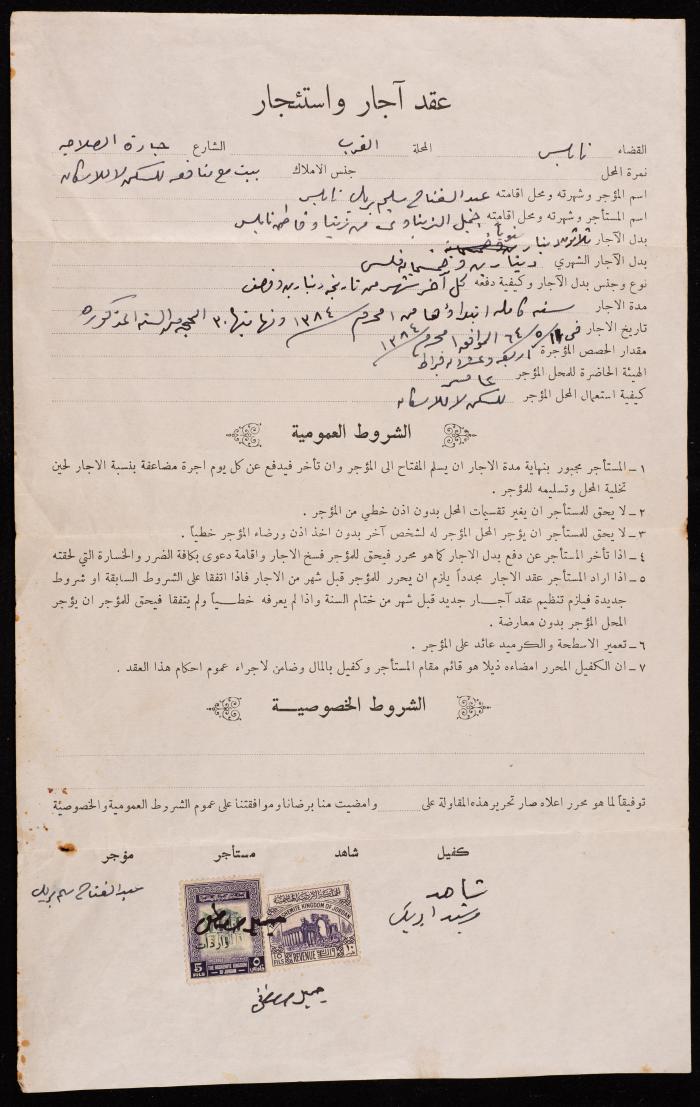 عقد آجار واستئجار
القضاء نابلس المحلة الغرب الشارع حارة الصلاحيه
نمرة المحل جنس الاملاك بيت مع منافعه للسكن لا للاسكان
اسم المؤجر وشهرته ومحل اقامته عبد الفتاح سليم بريك نابلس
اسم المستأجر وشهرته ومحل اقامته جميل نابلس
بدل الآجار ثلاثون دينار سنويا
بدل الآجار الشهري دينارين وخمسماية فلس
نوع وجنس بدل الآجار وكيفية دفعه كل آخر شهر من تاريخه دينارين ونصف
مدة الاجار سنه كامله ابتداؤها من ١ محرم / ١٣٨٤ ونهايتها ٣٠ الحجه من السنه المذكوره
تاريخ الاجار في ٦٤/٥/ الموافق ١ محرم / ١٣٨٤
مقدار الحصص المؤجرة اربعه وعشرون قيراط
الهيئة الحاضرة للمحل المؤجر عامر
كيفية استعمال المحل المؤجر للسكن لا للاسكان
الشروط العمومية
١ ــ المستأجر مجبور بنهاية مدة الاجار ان يسلم المفتاح الى المؤجر وان تأخر فيدفع عن كل يوم اجرة مضاعفة بنسبة الاجار لحين
تخلية المحل وتسليمه للمؤجر .
٢ ــ لا يحق للمستأجر ان يغير تقسيمات المحل بدون اذن خطي من المؤجر .
٣ ــ لا يحق للمستأجر ان يؤجر المحل المؤجر له لشخص آخر بدون اخذ اذن ورضاء المؤجر خطياً .
٤ ــ اذا تأخر المستأجر عن دفع بدل الاجار كما هو محرر فيحق للمؤجر فسخ الاجار واقامة دعوى بكافة الضرر والخسارة التي لحقته
٥ ــ اذا اراد المستأجر عقد الاجار مجدداً يلزم ان يحرر للمؤجر قبل شهر من الاجار فاذا اتفقا على الشروط السابقة او شروط
جديدة فيلزم تنظيم عقد آجــار جديد قبل شهر من ختام السنة واذا لم يعرفه خطــياً ولم يتفقا فيحق للمؤجر ان يؤجر
المحل المؤجر بدون معارضة .
٦ ــ تعمير الاسطحة والكرميد عائد على المؤجر .
٧ ــ ان الكفيل المحرر امضاءه ذيلا هو قائم مقام المستأجر وكفيل بالمال وضامن لاجراء عموم احكام هذا العقد .
الشروط الخصوصيــة
توفيقاً لما هو محرر اعلاه صار تحرير هذه المقاولة على وامضيت منا برضانا وموافقتنا على عموم الشروط العمومية والخصوصية
كفيل شاهد مستأجر مؤجر
شاهد
عبد الفتاح سليم بريك
HEMITE KINGDOM OF JORDAN
REVENUE
واردات
5 FILS
THE HASHEMITE KINGDOM OF JORDAN
جميل مصطفى